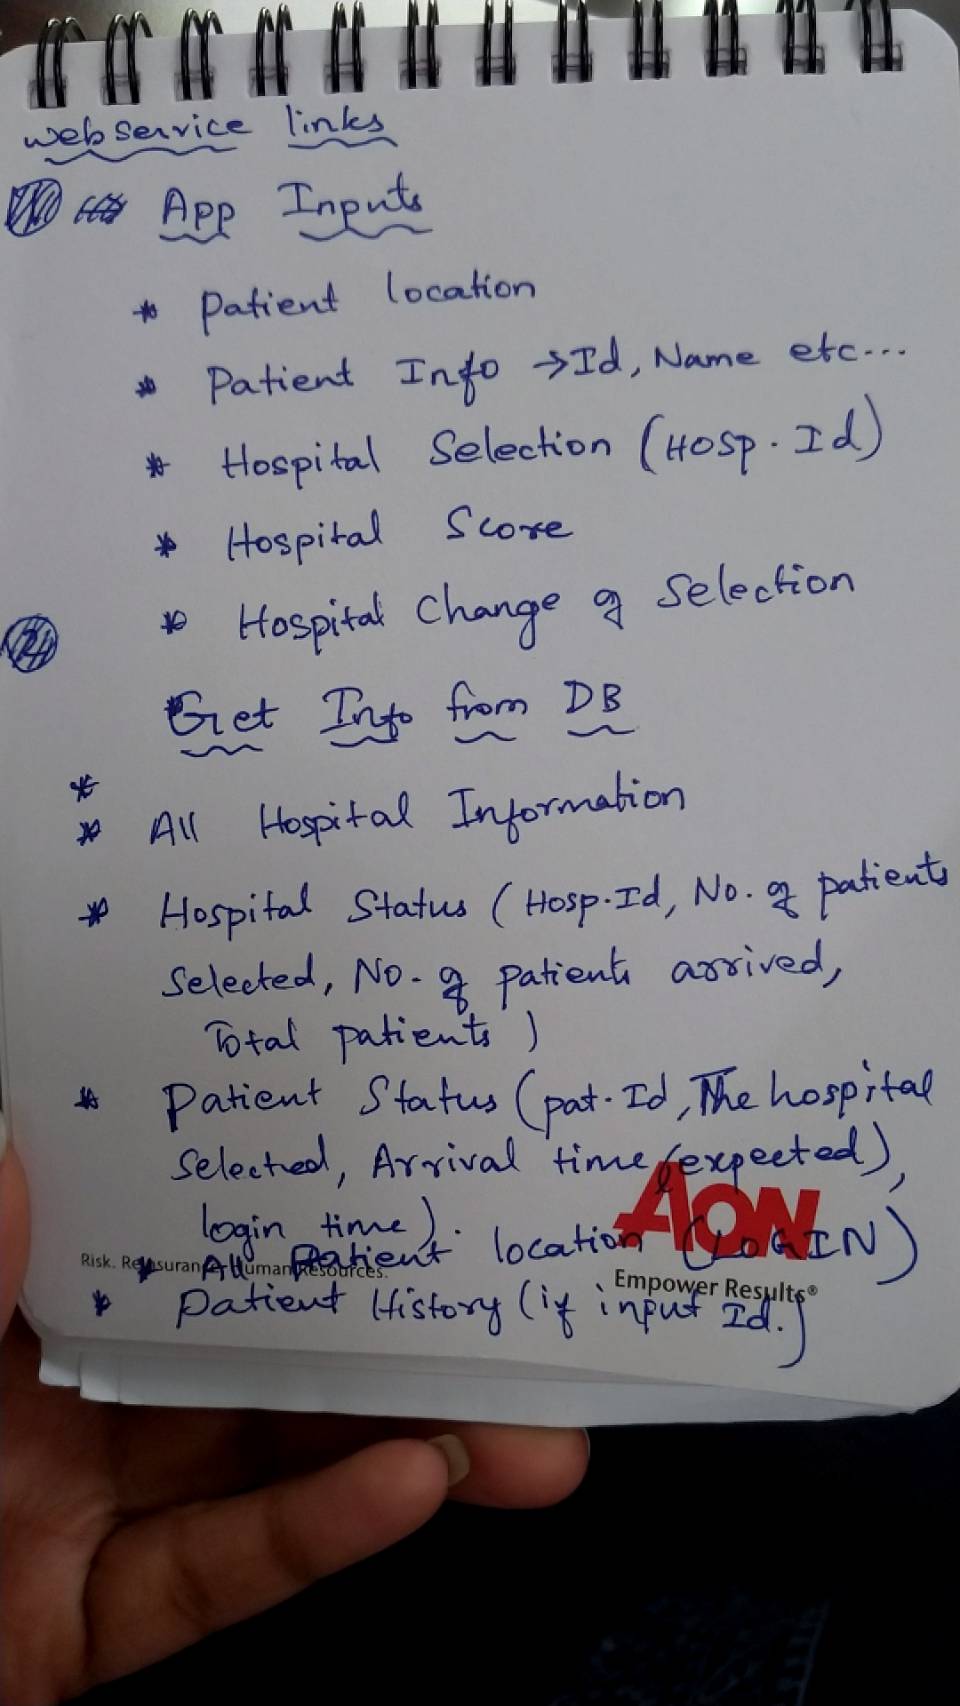 webservice links
App Inputs
* Patient location
* Patient Info → Id, Name etc...
* Hospital Selection (Hosp. Id)
* Hospital Score
* Hospital Change of Selection
Get Info from DB
*
* All Hospital Information
* Hospital Status (Hosp.Id, No. of patients
Selected, No. of patients arrived,
Total patients)
* Patient Status (pat. Id, The hospital
Selected, Arrival time (expected),
login time).
* All Patient location (LOGIN)
AON
Risk. Reinsurance. Human Resources.
Empower Results®
* Patient History (if input Id.)